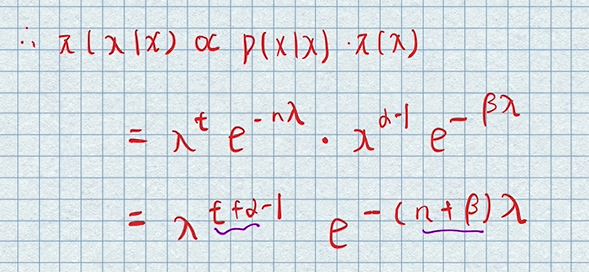 ∴ π(λ|x) ∝ p(x|λ) · π(λ)
= λ^t e^{-nλ} · λ^{α-1} e^{-βλ}
= λ^{t+α-1} e^{-(n+β)λ}